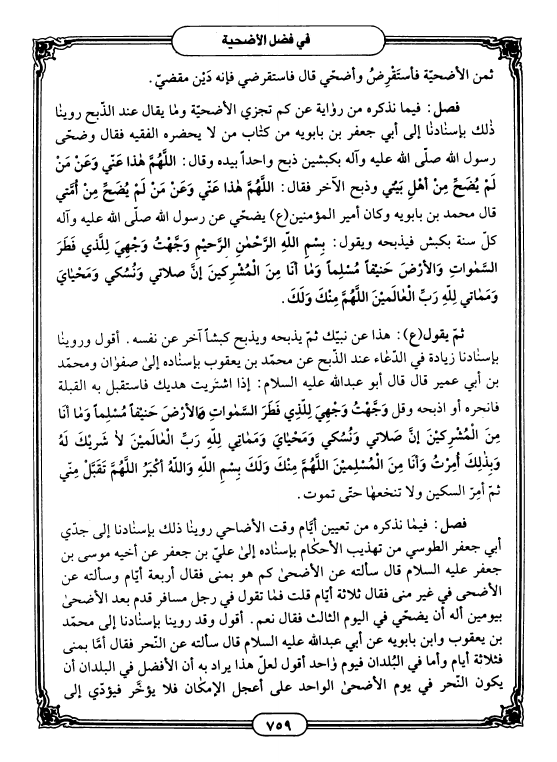 في فضل الأضحية
ثمن الأضحيّة فأستَقْرِضُ وأضحّي قال فاستقرضي فإنه دَيْن مقضيّ.
فصل: فيما نذكره من رواية عن كم تجزي الأضحية وما يقال عند الذّبح روينا
ذٰلك بإسنادنا إلى أبي جعفر بن بابويه من كتاب من لا يحضره الفقيه فقال وضحّى
رسول الله صلّى الله عليه وآله بكبشين ذبح واحداً بيده وقال: اللّهُمَّ هٰذا عَنّي وَعَنْ مَنْ
لَمْ يُضَحِّ مِنْ أهْلِ بَيْتي وذبح الآخر فقال: اللّهُمَّ هٰذا عَنّي وَعَنْ مَنْ لَمْ يُضَحِّ مِنْ أُمَّتي
قال محمد بن بابويه وكان أمير المؤمنين(ع) يضحّي عن رسول الله صلّى الله عليه وآله
كلّ سنة بكبش فيذبحه ويقول: بِسْمِ اللّهِ الرَّحْمٰنِ الرَّحيْمِ وَجَّهْتُ وَجْهيَ لِلَّذي فَطَرَ
السَّمٰواتِ وَالأرْضَ حَنيْفاً مُسْلِماً وَمٰا أنَا مِنَ الْمُشْرِكينَ إنَّ صَلاتي وَنُسُكي وَمَحْيٰايَ
وَمَمٰاتي لِلّهِ رَبِّ الْعٰالَميْنَ اللّهُمَّ مِنْكَ وَلَكَ.
ثمّ يقول(ع): هذا عن نبيّك ثمّ يذبحه ويذبح كبشاً آخر عن نفسه. أقول وروينا
بإسنادنا زيادة في الدّعاء عند الذّبح عن محمد بن يعقوب بإسناده إلىٰ صفوان ومحمد
بن أبي عمير قال قال أبو عبدالله عليه السلام: إذا اشتريت هديك فاستقبل به القبلة
فانحره أو اذبحه وقل وَجَّهْتُ وَجْهيَ لِلَّذي فَطَرَ السَّمٰواتِ وَالأرْضَ حَنيْفاً مُسْلِماً وَمٰا أنَا
مِنَ الْمُشْرِكيْنَ إنَّ صَلاتي وَنُسُكي وَمَحْيٰايَ وَمَمٰاتي لِلّهِ رَبِّ الْعٰالَميْنَ لاٰ شَريْكَ لَهُ
وَبِذٰلِكَ أُمِرْتُ وَأنَا مِنَ الْمُسْلِميْنَ اللّهُمَّ مِنْكَ وَلَكَ بِسْمِ اللّهِ وَاللّهُ أكْبَرُ اللّهُمَّ تَقَبَّلْ مِنّي
ثمّ أمِرّ السكين ولا تنخعها حتّى تموت.
فصل: فيما نذكره من تعيين أيّام وقت الأضاحي روينا ذلك بإسنادنا إلى جدّي
أبي جعفر الطوسي من تهذيب الأحكام بإسناده إلىٰ عليّ بن جعفر عن أخيه موسى بن
جعفر عليه السلام قال سألته عن الأضحىٰ كم هو بمنى فقال أربعة أيّام وسألته عن
الأضحى في غير منى فقال ثلاثة أيّام قلت فما تقول في رجل مسافر قدم بعد الأضحىٰ
بيومين أله أن يضحّي في اليوم الثالث فقال نعم. أقول وقد روينا بإسنادنا إلى محمّد
بن يعقوب وابن بابويه عن أبي عبدالله عليه السلام قال سألته عن النّحر فقال أمّا بمنى
فثلاثة أيام وأما في البُلدان فيوم وٰاحد أقول لعلّ هذا يراد به أن الأفضل في البلدان أن
يكون النّحر في يوم الأضحىٰ الواحد على أعجل الإمكان فلا يؤخّر فيؤدّي إلى
٧٥٩